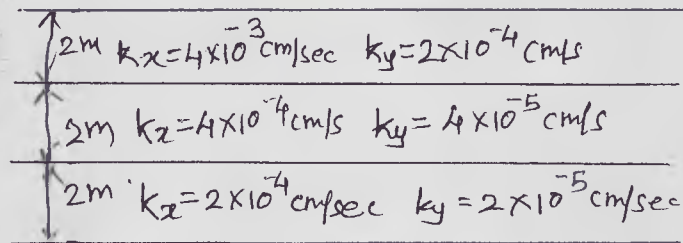 2m kx=4×10⁻³cm/sec ky=2×10⁻⁴cm/s
2m kx=4×10⁻⁴cm/s ky=4×10⁻⁵cm/s
2m kx=2×10⁻⁴cm/sec ky=2×10⁻⁵cm/sec